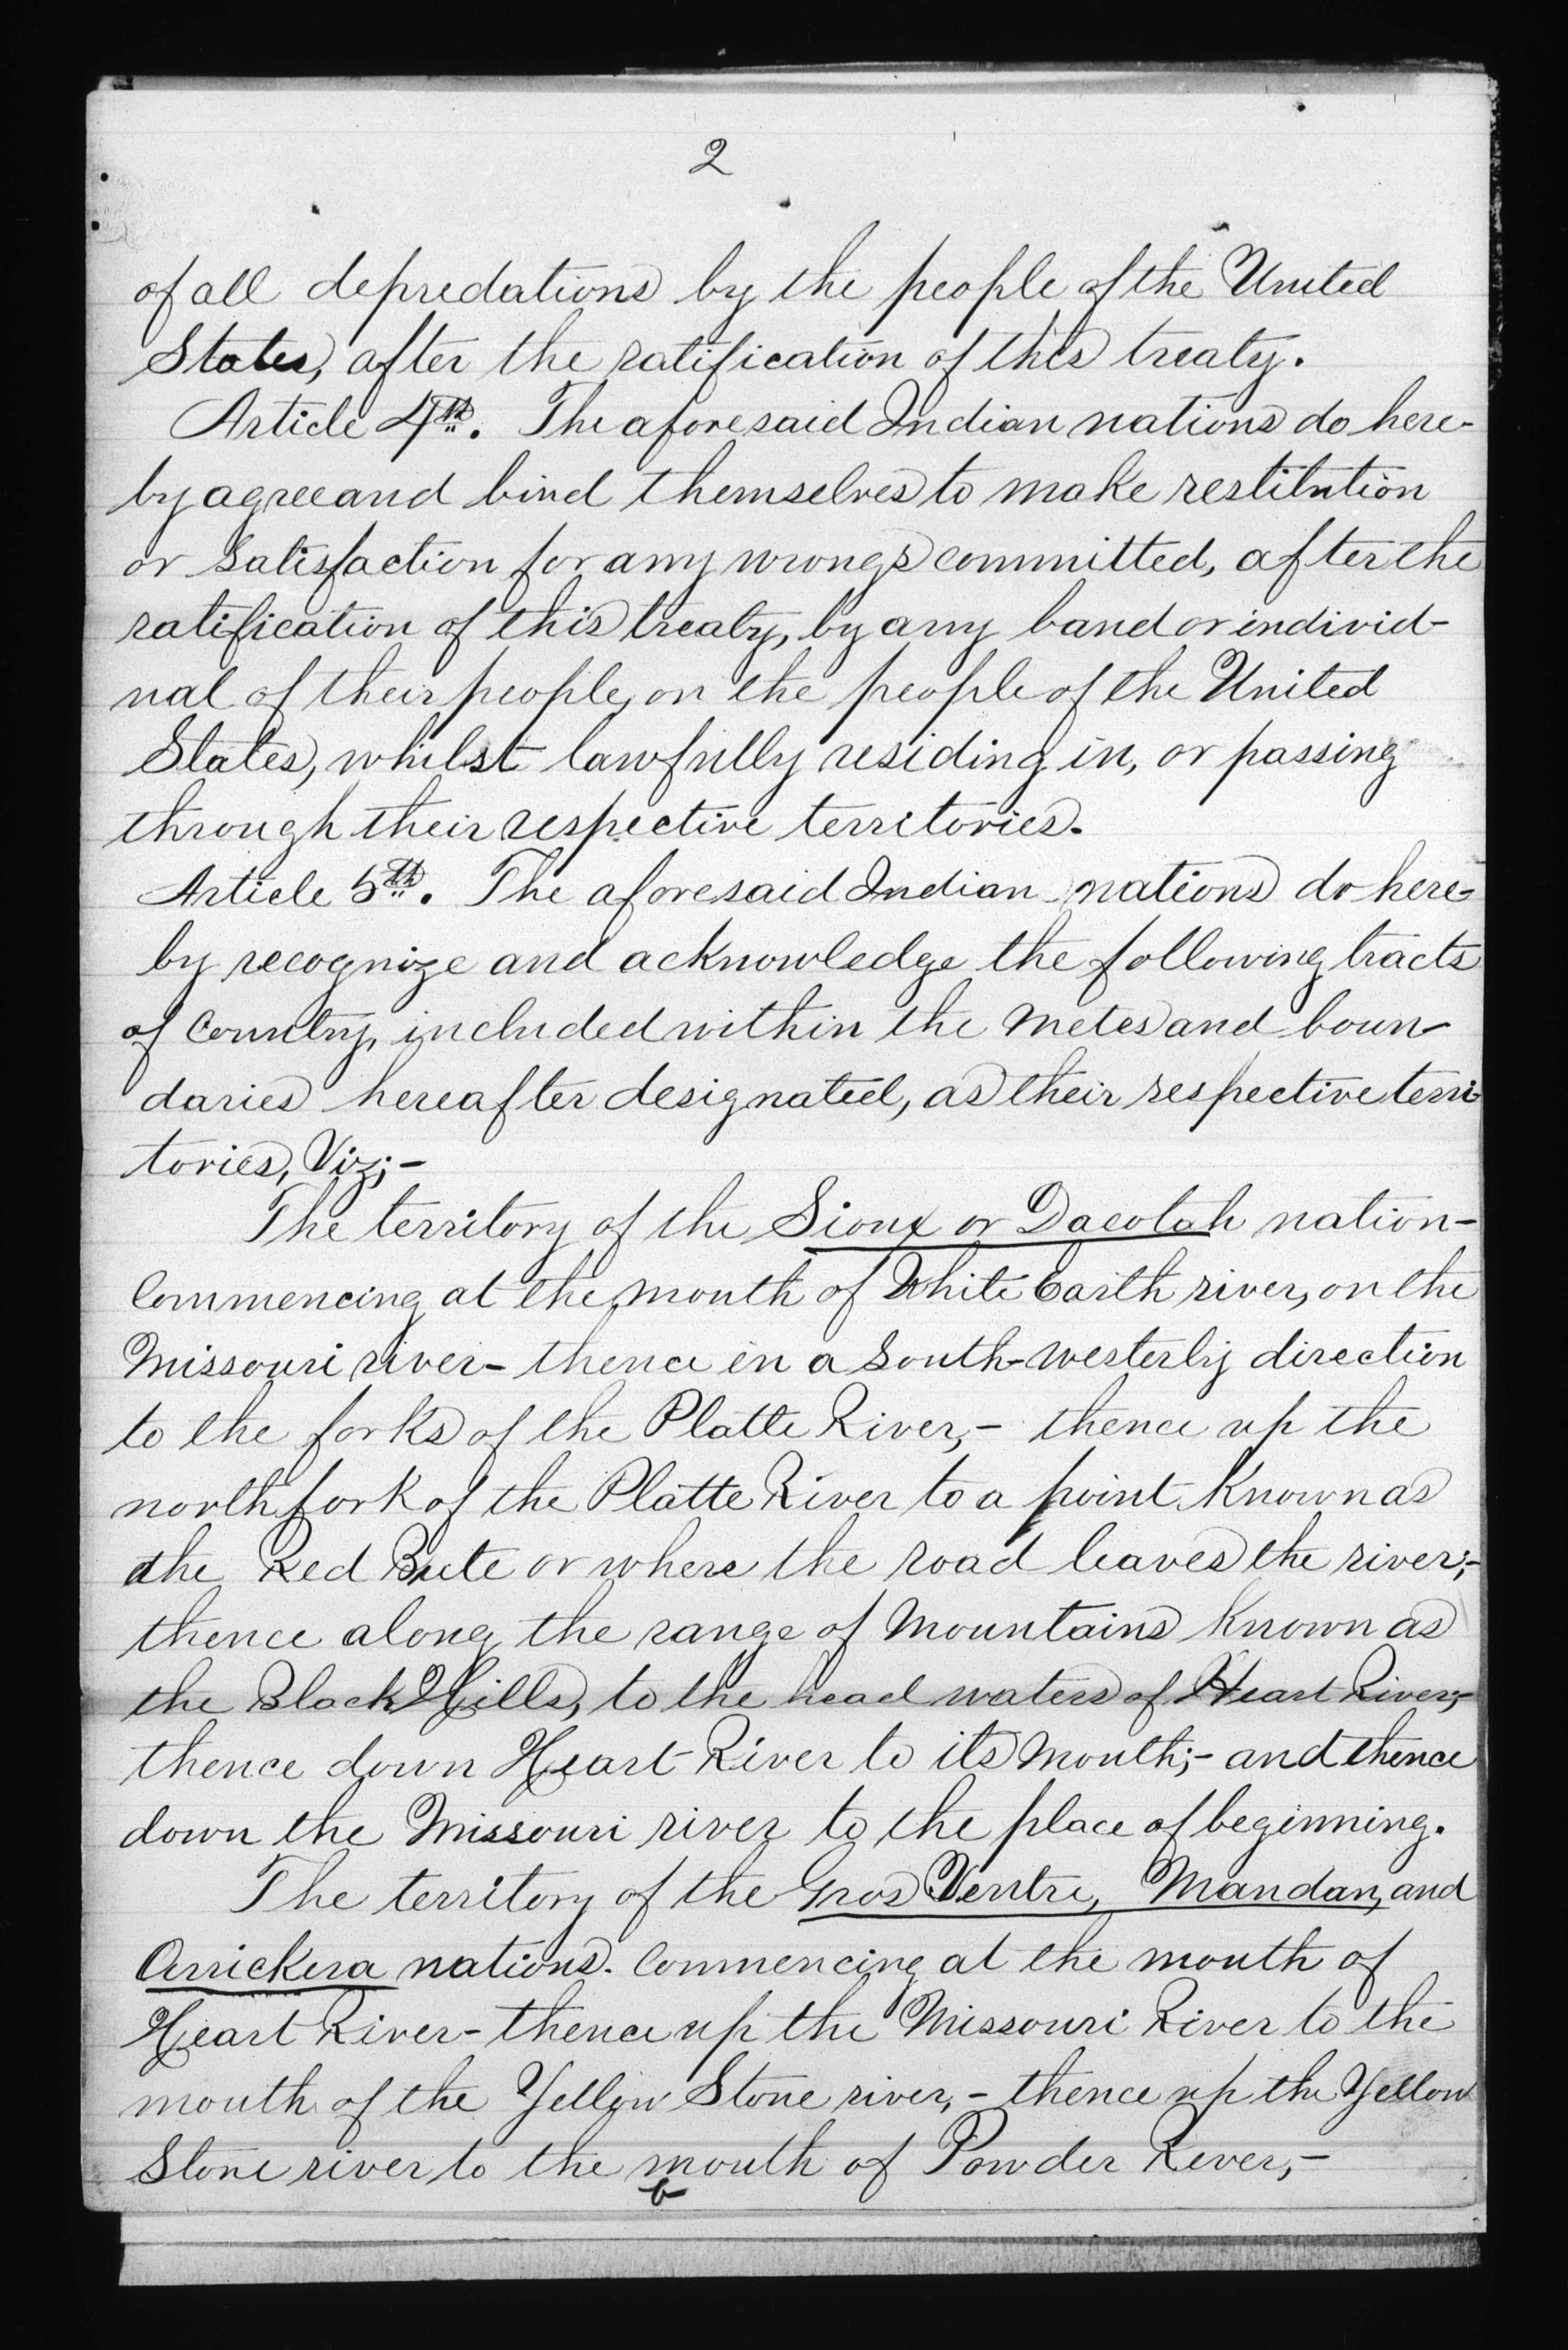 2
of all depredations by the people of the United
States, after the ratification of this treaty.
Article 4th. The aforesaid Indian nations do here-
by agree and bind themselves to make restitution
or satisfaction for any wrongs committed, after the
ratification of this treaty, by any band or individ-
ual of their people, on the people of the United
States, whilst lawfully residing in, or passing
through their respective territories.
Article 5th. The aforesaid Indian nations do here-
by recognize and acknowledge the following tracts
of Country, included within the metes and boun-
daries hereafter designated, as their respective terri-
tories, Viz;-
The territory of the Sioux or Dacotah nation-
Commencing at the mouth of White Earth river, on the
Missouri river- thence in a South-westerly direction
to the forks of the Platte River,- thence up the
north fork of the Platte River to a point Known as
the Red Bute or where the road leaves the river;-
thence along the range of Mountains Known as
the Black Hills, to the head waters of Heart River;-
thence down Heart River to its mouth;- and thence
down the Missouri river to the place of beginning.
The territory of the Gros Ventre, Mandan, and
Arrickera nations. Commencing at the mouth of
Heart River- thence up the Missouri River to the
mouth of the Yellow Stone river,- thence up the Yellow
Stone river to the mouth of Powder River,-